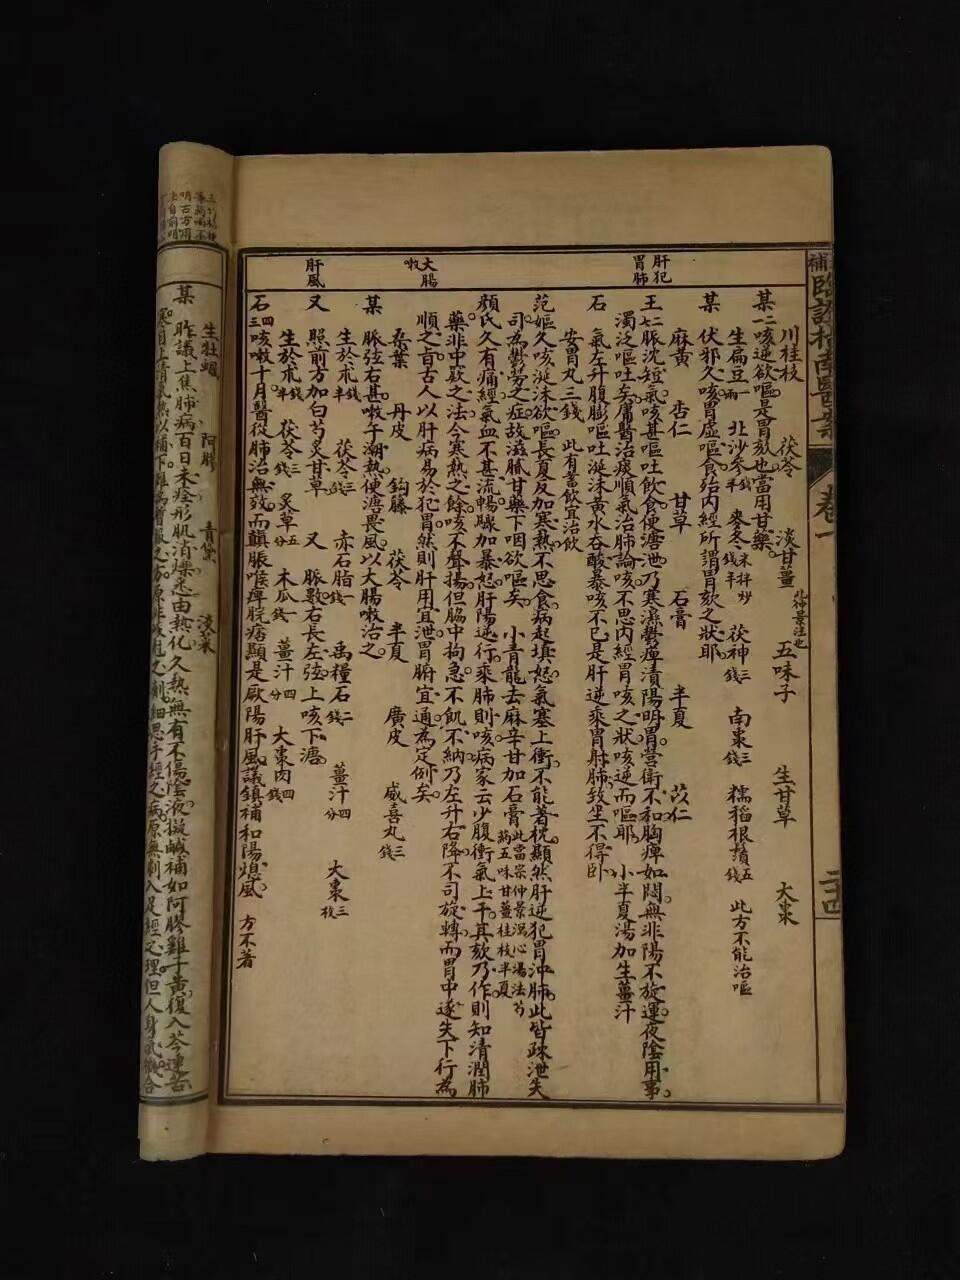 補臨證指南醫案 卷一 二十四
肝犯胃肺
大腸嗽
肝風
川桂枝 茯苓 淡甘薑 五味子 生甘草 大棗
某二咳逆欲嘔是胃欬也當用甘藥
生扁豆一兩 北沙參錢半 麥冬米拌炒錢半 茯神三錢 南棗三錢 糯稻根鬚五錢 此方不能治嘔
某 伏邪久咳胃虛嘔食殆內經所謂胃欬之狀耶
麻黃 杏仁 甘草 石膏 半夏 苡仁
王七二脈沈短氣咳甚嘔吐飲食便溏泄乃寒濕鬱痺漬陽明胃營衛不和胸痺如悶無非陽不旋運夜陰用事
濁泛嘔吐矣庸醫治痰順氣治肺論咳不思內經胃咳之狀咳逆而嘔耶 小半夏湯加生薑汁
石 氣左升腹膨嘔吐涎沫黃水吞酸暴咳不已是肝逆乘胃射肺致坐不得卧
安胃丸三錢 此有蓄飲宜治飲
范嫗久咳涎沫欲嘔長夏反加寒熱不思食病起嗔怒氣塞上衝不能著枕顯然肝逆犯胃沖肺此皆疎泄失
司為鬱勞之症故滋膩甘藥下咽欲嘔矣 小青龍去麻辛甘加石膏 此當宗仲景瀉心湯法芍藥五味甘薑桂枝半夏
顏氏久有痛經氣血不甚流暢驟加暴怒肝陽逆行乘肺則咳病家云少腹衝氣上干其欬乃作則知清潤肺
藥非中窾之法今寒熱之餘咳不聲揚但脇中拘急不飢不納乃左升右降不司旋轉而胃中遂失下行為
順之旨古人以肝病易於犯胃然則肝用宜泄胃腑宜通為定例矣
桑葉 丹皮 鈎藤 茯苓 半夏 廣皮 威喜丸三錢
某 脈弦右甚嗽午潮熱便溏畏風以大腸嗽治之
生於朮錢半 茯苓三錢 赤石脂一錢 禹糧石二錢 薑汁四分 大棗三枚
又 照前方加白芍炙甘草 又 脈數右長左弦上咳下溏
生於朮錢半 茯苓三錢 炙草五分 木瓜一錢 薑汁四分 大棗肉四錢
石四三咳嗽十月醫從肺治無效而巔脹喉痺脘痞顯是厥陽肝風議鎮補和陽熄風 方不著
生牡蠣 阿膠 青黛 淡菜
某 昨議上焦肺病百日未痊形肌消爍悉由熱化久熱無有不傷陰液擬鹹補如阿膠雞子黃復入芩連苦
寒自上清氣熱以補下雖為曾服之方原非收用之劑細思手經之病原無劇入足經之理但人身氣機合